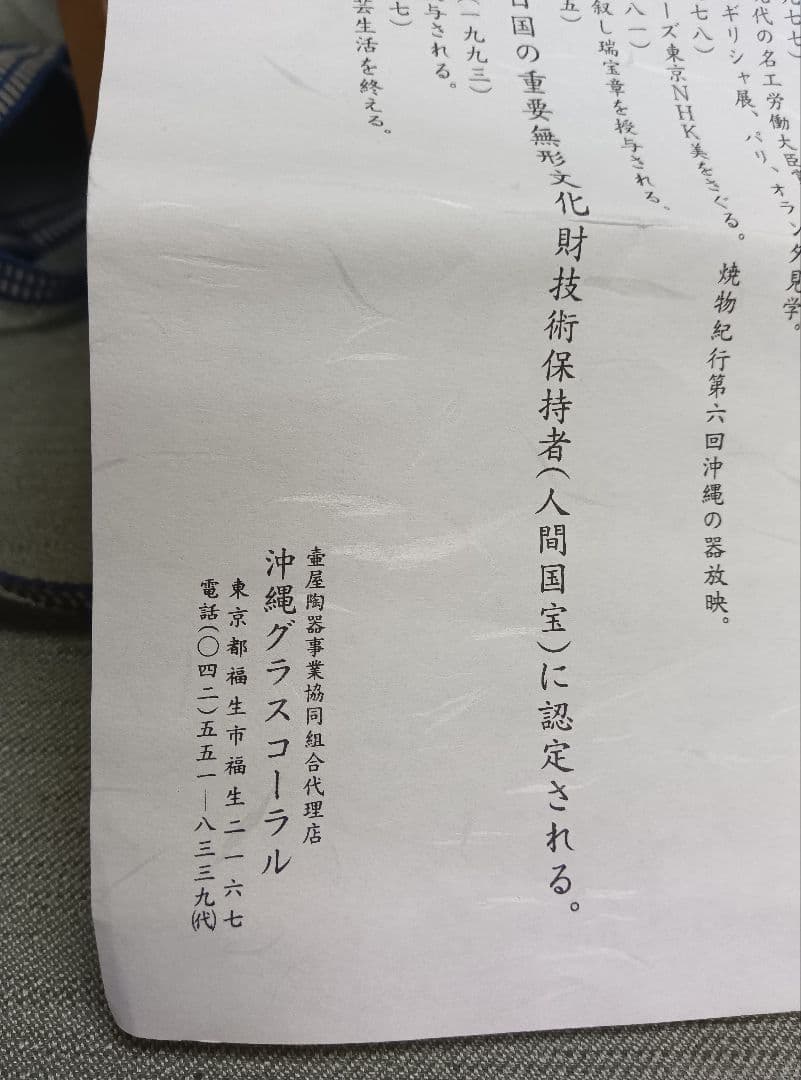 代の名工労働大臣
ギリシャ展、パリ、オランダ見学。
七八)
ーズ東京NHK美をさぐる。 焼物紀行第六回沖縄の器放映。
八一)
叙し瑞宝章を授与される。
五)
国の重要無形文化財技術保持者(人間国宝)に認定される。
(一九九三)
与される。
七)
芸生活を終える。
壷屋陶器事業協同組合代理店
沖縄グラスコーラル
東京都福生市福生二一六七
電話(〇四二)五五一―八三三九(代)